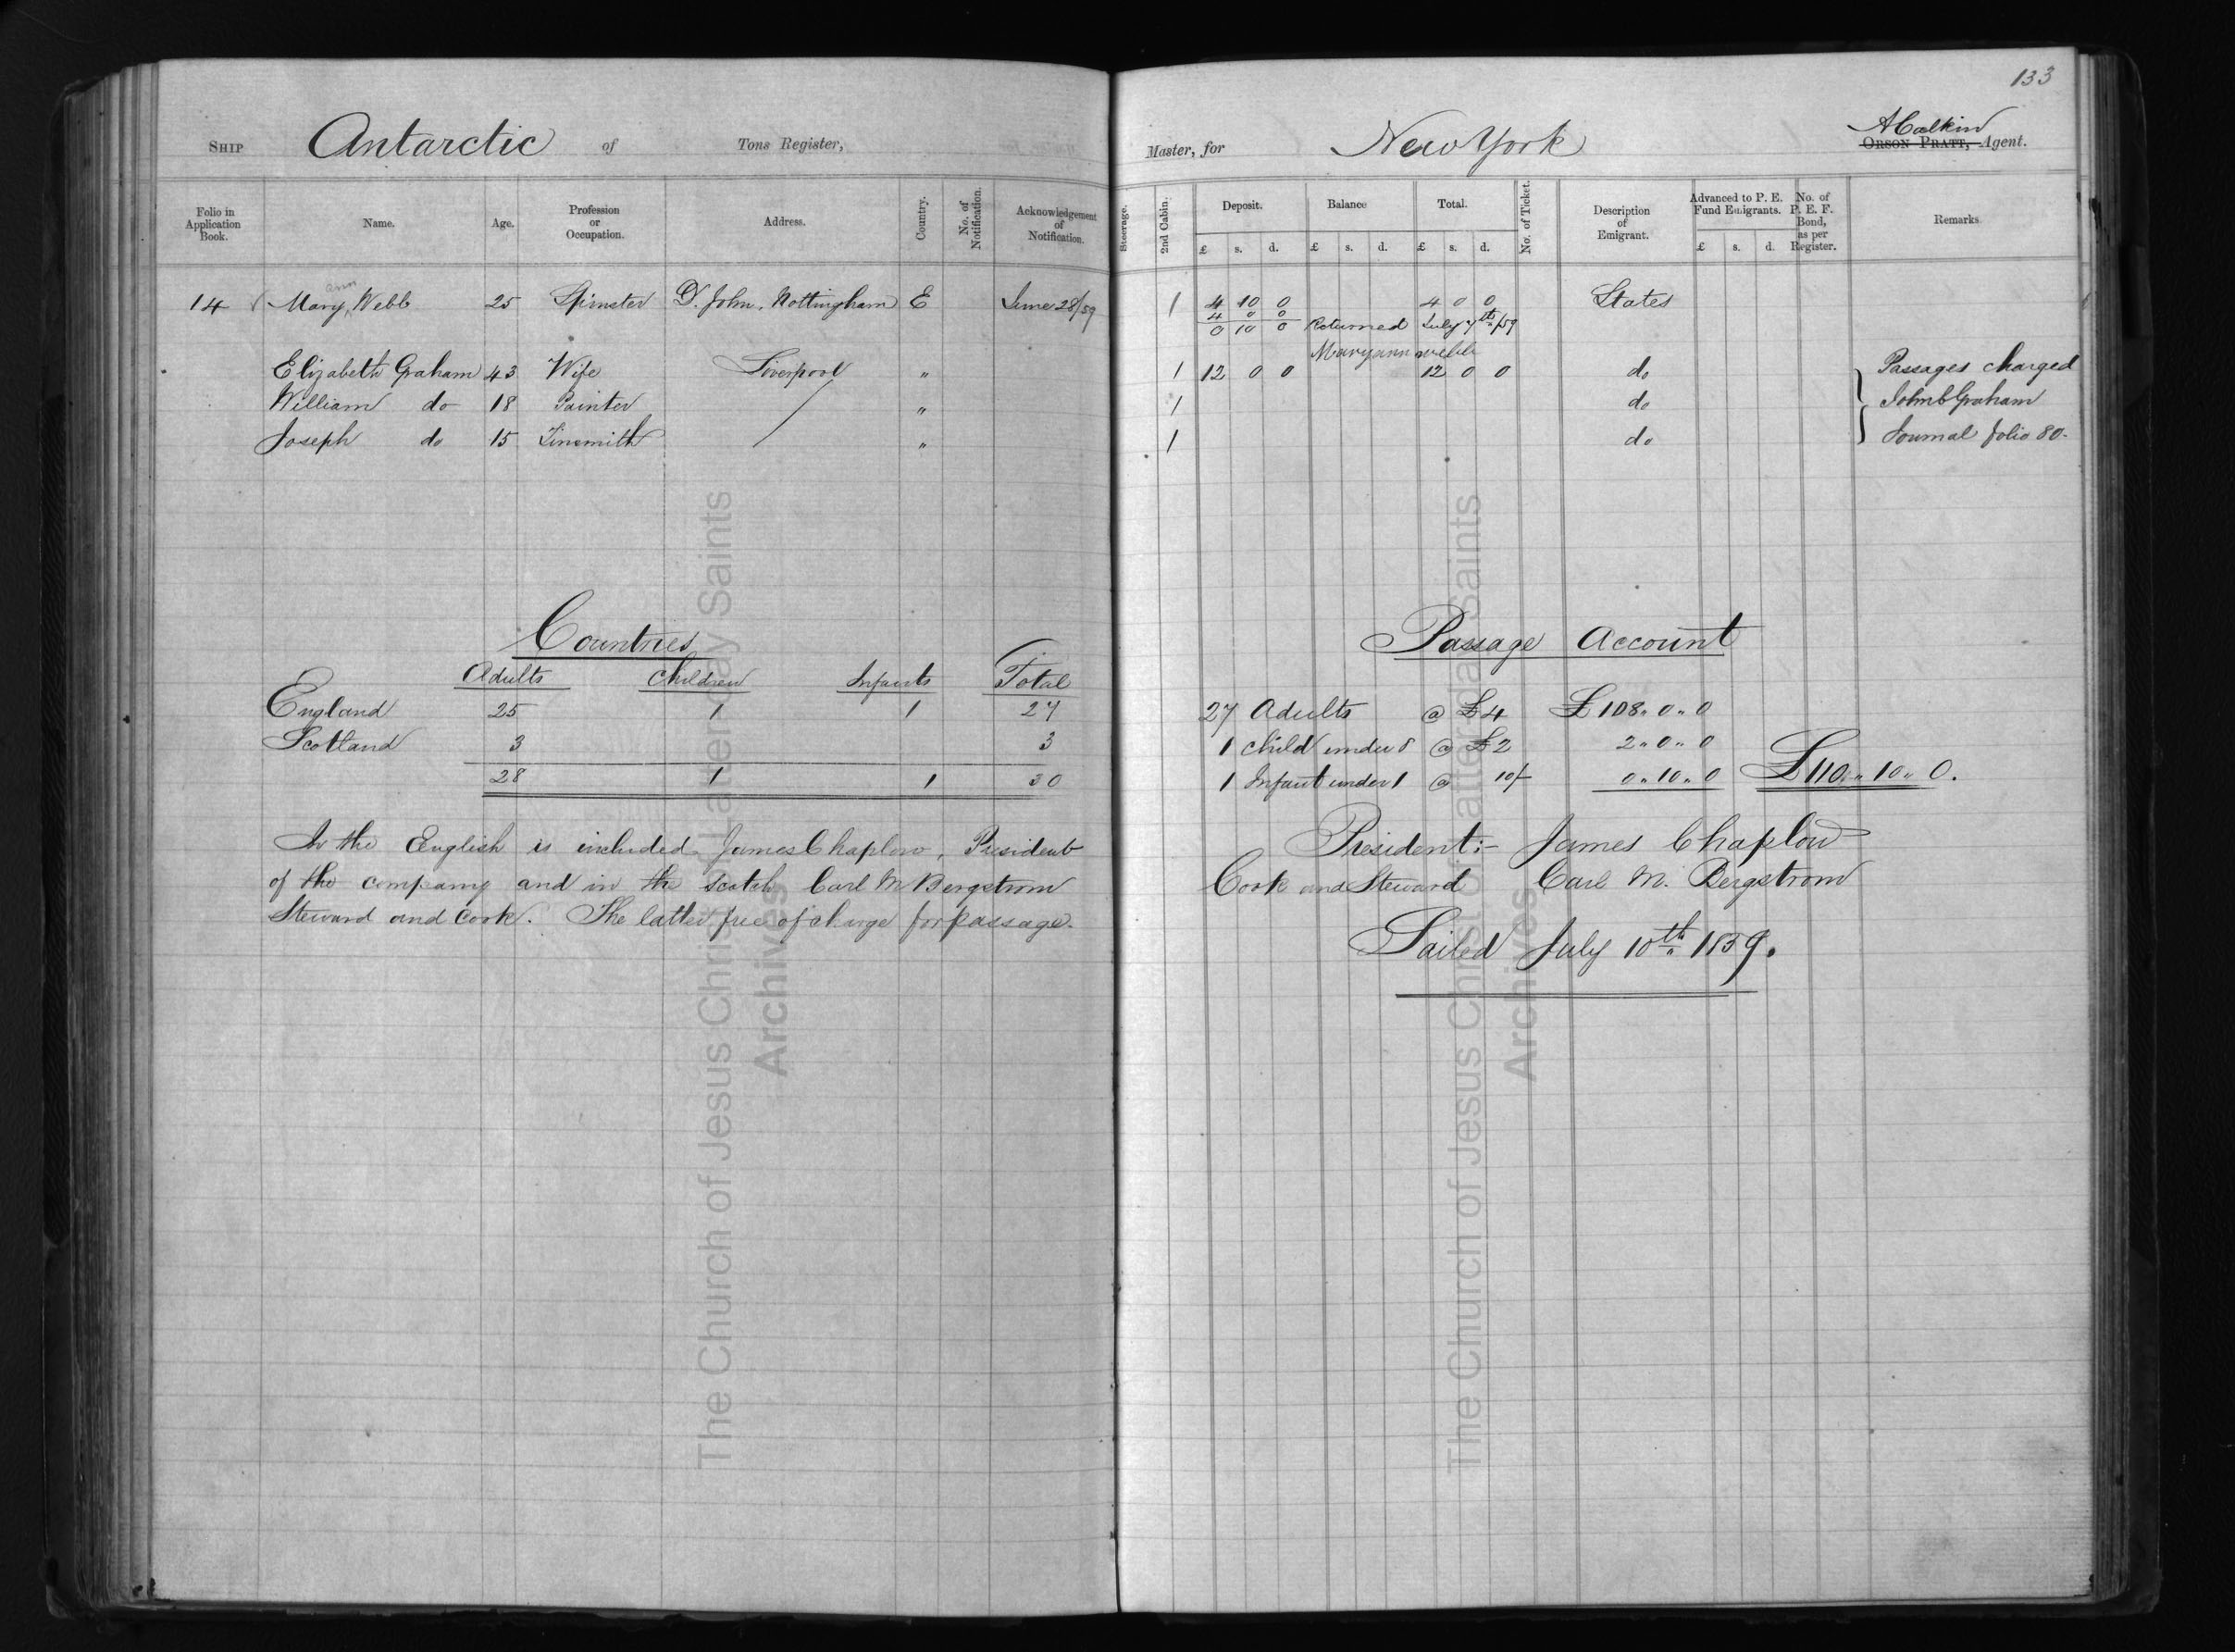 133
SHIP Antarctic of Tons Register,
Master, for New York A Calkin
ORSON PRATT, Agent.
Folio in Application Book. Name. Age. Profession or Occupation. Address. Country. No. of Notification. Acknowledgement of Notification.
Steerage. 2nd Cabin. Deposit. £ s. d. Balance £ s. d. Total. £ s. d. No. of Ticket. Description of Emigrant. Advanced to P. E. Fund Emigrants. £ s. d. No. of P. E. F. Bond, as per Register. Remarks
14 Mary ann Webb 25 Spinster D. John, Nottingham E June 28/59
1 4 10 0 4 0 0 States
4 0 0
0 10 0 Returned July 7th/59
Mary ann webb
Elizabeth Graham 43 Wife Liverpool "
1 12 0 0 12 0 0 do Passages charged
William do 18 Painter "
1 do John C Graham
Joseph do 15 Tinsmith "
1 do Journal folio 80.
Countries
Adults Children Infants Total
England 25 1 1 27
Scotland 3 3
28 1 1 30
In the English is included James Chaplow, President
of the company and in the Scotch Carl M Bergstrom
Steward and Cook. The latter free of charge for passage.
Passage Account
27 Adults @ £4 £108 " 0 " 0
1 child under 8 @ £2 2 " 0 " 0
1 Infant under 1 @ 10/- 0 " 10 " 0 £110 " 10 " 0.
President:- James Chaplow
Cook and Steward Carl M. Bergstrom
Sailed July 10th 1859.
The Church of Jesus Christ of Latter-day Saints
Archives
The Church of Jesus Christ of Latter-day Saints
Archives